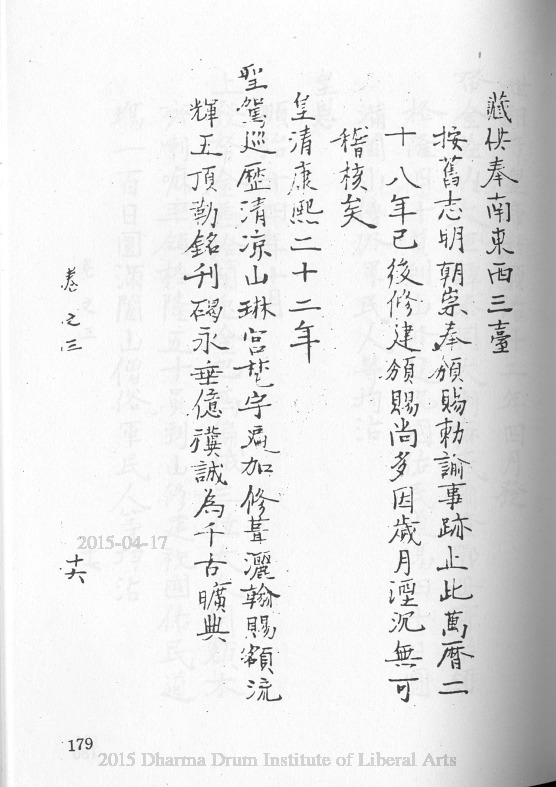 藏供奉南東西三臺
按舊志明朝崇奉頒賜勅諭事跡止此萬曆二
十八年已後修建頒賜尚多因歲月湮沉無可
稽核矣
皇清康熙二十二年
聖駕巡歷清凉山琳宮梵宇加修葺灑翰賜額流
輝玉頂勒銘刊碣永垂億禩誠為千古曠典
卷之三
十六
2015-04-17
179
2015 Dharma Drum Institute of Liberal Arts